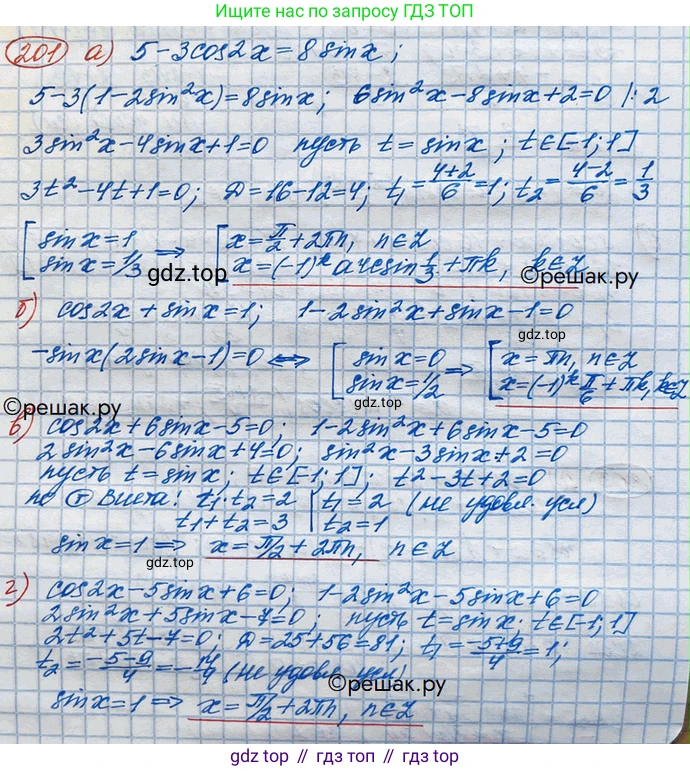 Ищите нас в поиске по запросу ГДЗ ТОП
201 а) 5-3cos2x=8sinx;
5-3(1-2sin²x)=8sinx; 6sin²x-8sinx+2=0 |:2
3sin²x-4sinx+1=0 пусть t=sinx; t∈[-1;1]
3t²-4t+1=0; D=16-12=4; t₁=(4+2)/6=1; t₂=(4-2)/6=1/3
[sinx=1 [x=π/2+2πn, n∈Z
sinx=1/3 ⇒ x=(-1)ᵏarcsin1/3+πk, k∈Z
gdz.top
©решак.ру
б) cos2x+sinx=1; 1-2sin²x+sinx-1=0
gdz.top
-sinx(2sinx-1)=0 ⇔ [sinx=0 [x=πn, n∈Z
sinx=1/2 ⇒ x=(-1)ᵏπ/6+πk, k∈Z
gdz.top
©решак.ру
©решак.ру
в) cos2x+6sinx-5=0; 1-2sin²x+6sinx-5=0
2sin²x-6sinx+4=0; sin²x-3sinx+2=0
пусть t=sinx; t∈[-1;1]; t²-3t+2=0
по Т Виета: t₁·t₂=2 | t₁=2 (не удовл. усл)
t₁+t₂=3 | t₂=1
sinx=1 ⇒ x=π/2+2πn, n∈Z
gdz.top
г) cos2x-5sinx+6=0; 1-2sin²x-5sinx+6=0
2sin²x+5sinx-7=0; пусть t=sinx. t∈[-1;1]
2t²+5t-7=0; D=25+56=81; t₁=(-5+9)/4=1;
t₂=(-5-9)/4=-14/4 (не удовл. усл)
©решак.ру
sinx=1 ⇒ x=π/2+2πn, n∈Z
gdz.top // gdz.top // gdz.top // gdz.top